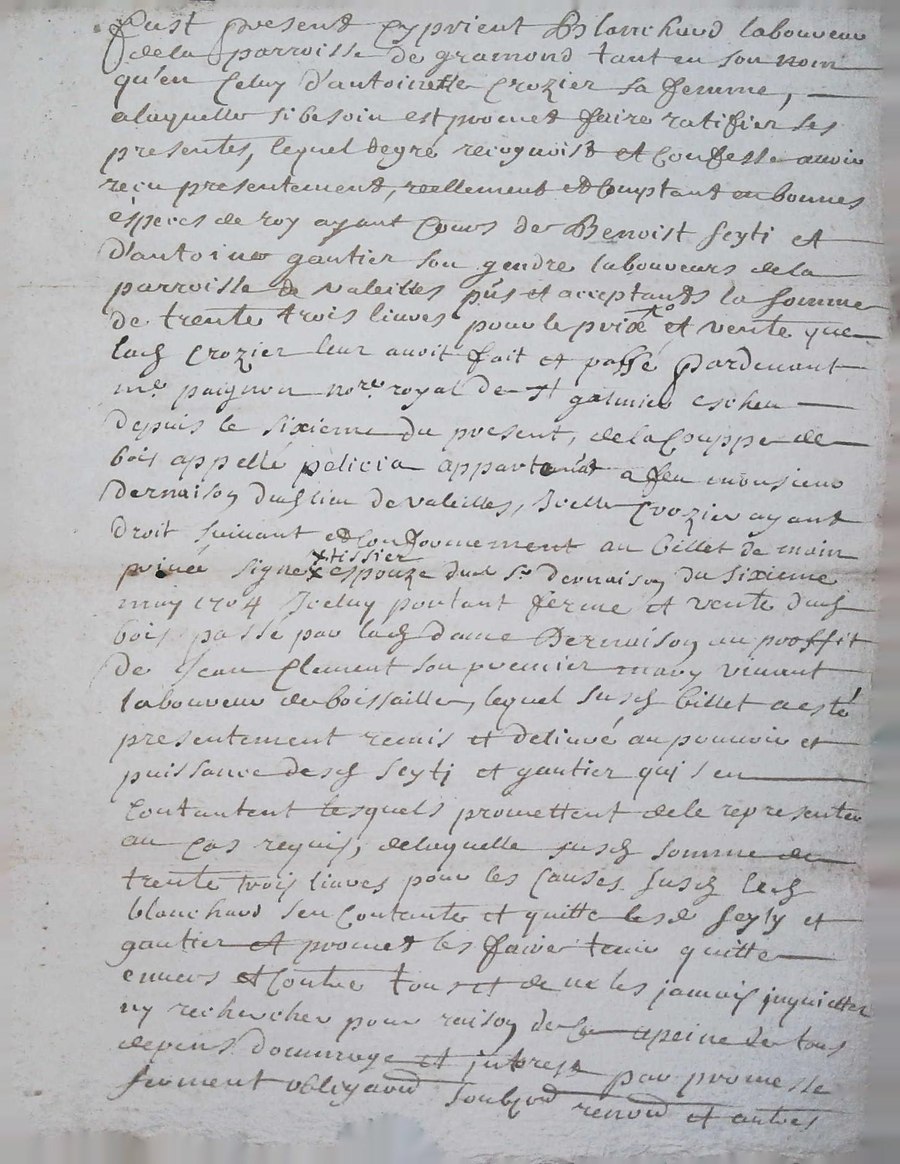 fust present Cyprient Blanchard laboureur
de la parroisse de gramond tant en son nom
qu'en Celuy d'antoinette Crozier sa femme,
a laquelle si besoin est promet faire ratifier les
presentes, lequel de gré recognoist et Confesse avoir
reçu presentement, reellement et Comptant en bonnes
éspeces de roy ayant Cours de Benoist seyti et
d'antoine gautier son gendre laboureurs de la
parroisse de valeilles p̃ńts et acceptantds la somme
de trente trois livres pour le prix et vente que
lad Crozier leur avoit fait et passé pardevant
me paignon nore royal de st galmier escheu
depuis le sixieme du present, de la Couppe de
bois appellé pelicia appartenant a feu monsieur
Dernaison dud lieu de valeilles, Icelle Crozier ayant
droit suivant et Conformement au billet de main
privée signe tissier espouze dud Sr dernaison du sixieme
may 1704 Iceluy portant ferme et vente dud
bois passé par lad dame Dernaison au proffit
de Jean Clement son premier mary vivant
laboureur de boissailles, lequel susd billet a esté
presentement remis et delivré au pouvoir et
puissance desd seyti et gautier qui s'en
Contantent lesquels promettent de le representer
au Cas requis, de laquelle susd somme de
trente trois livres pour les Causes susd led
blanchard s'en Contante et quitte lesd seyty et
gautier et promet les faire tenir quitte
envers et Contre tous et de ne les jamais inquietter
ny rechercher pour raison de ce a peine de tous
depens dommage et interest par promesse
serment obligaõn soubzõn renõn et autres